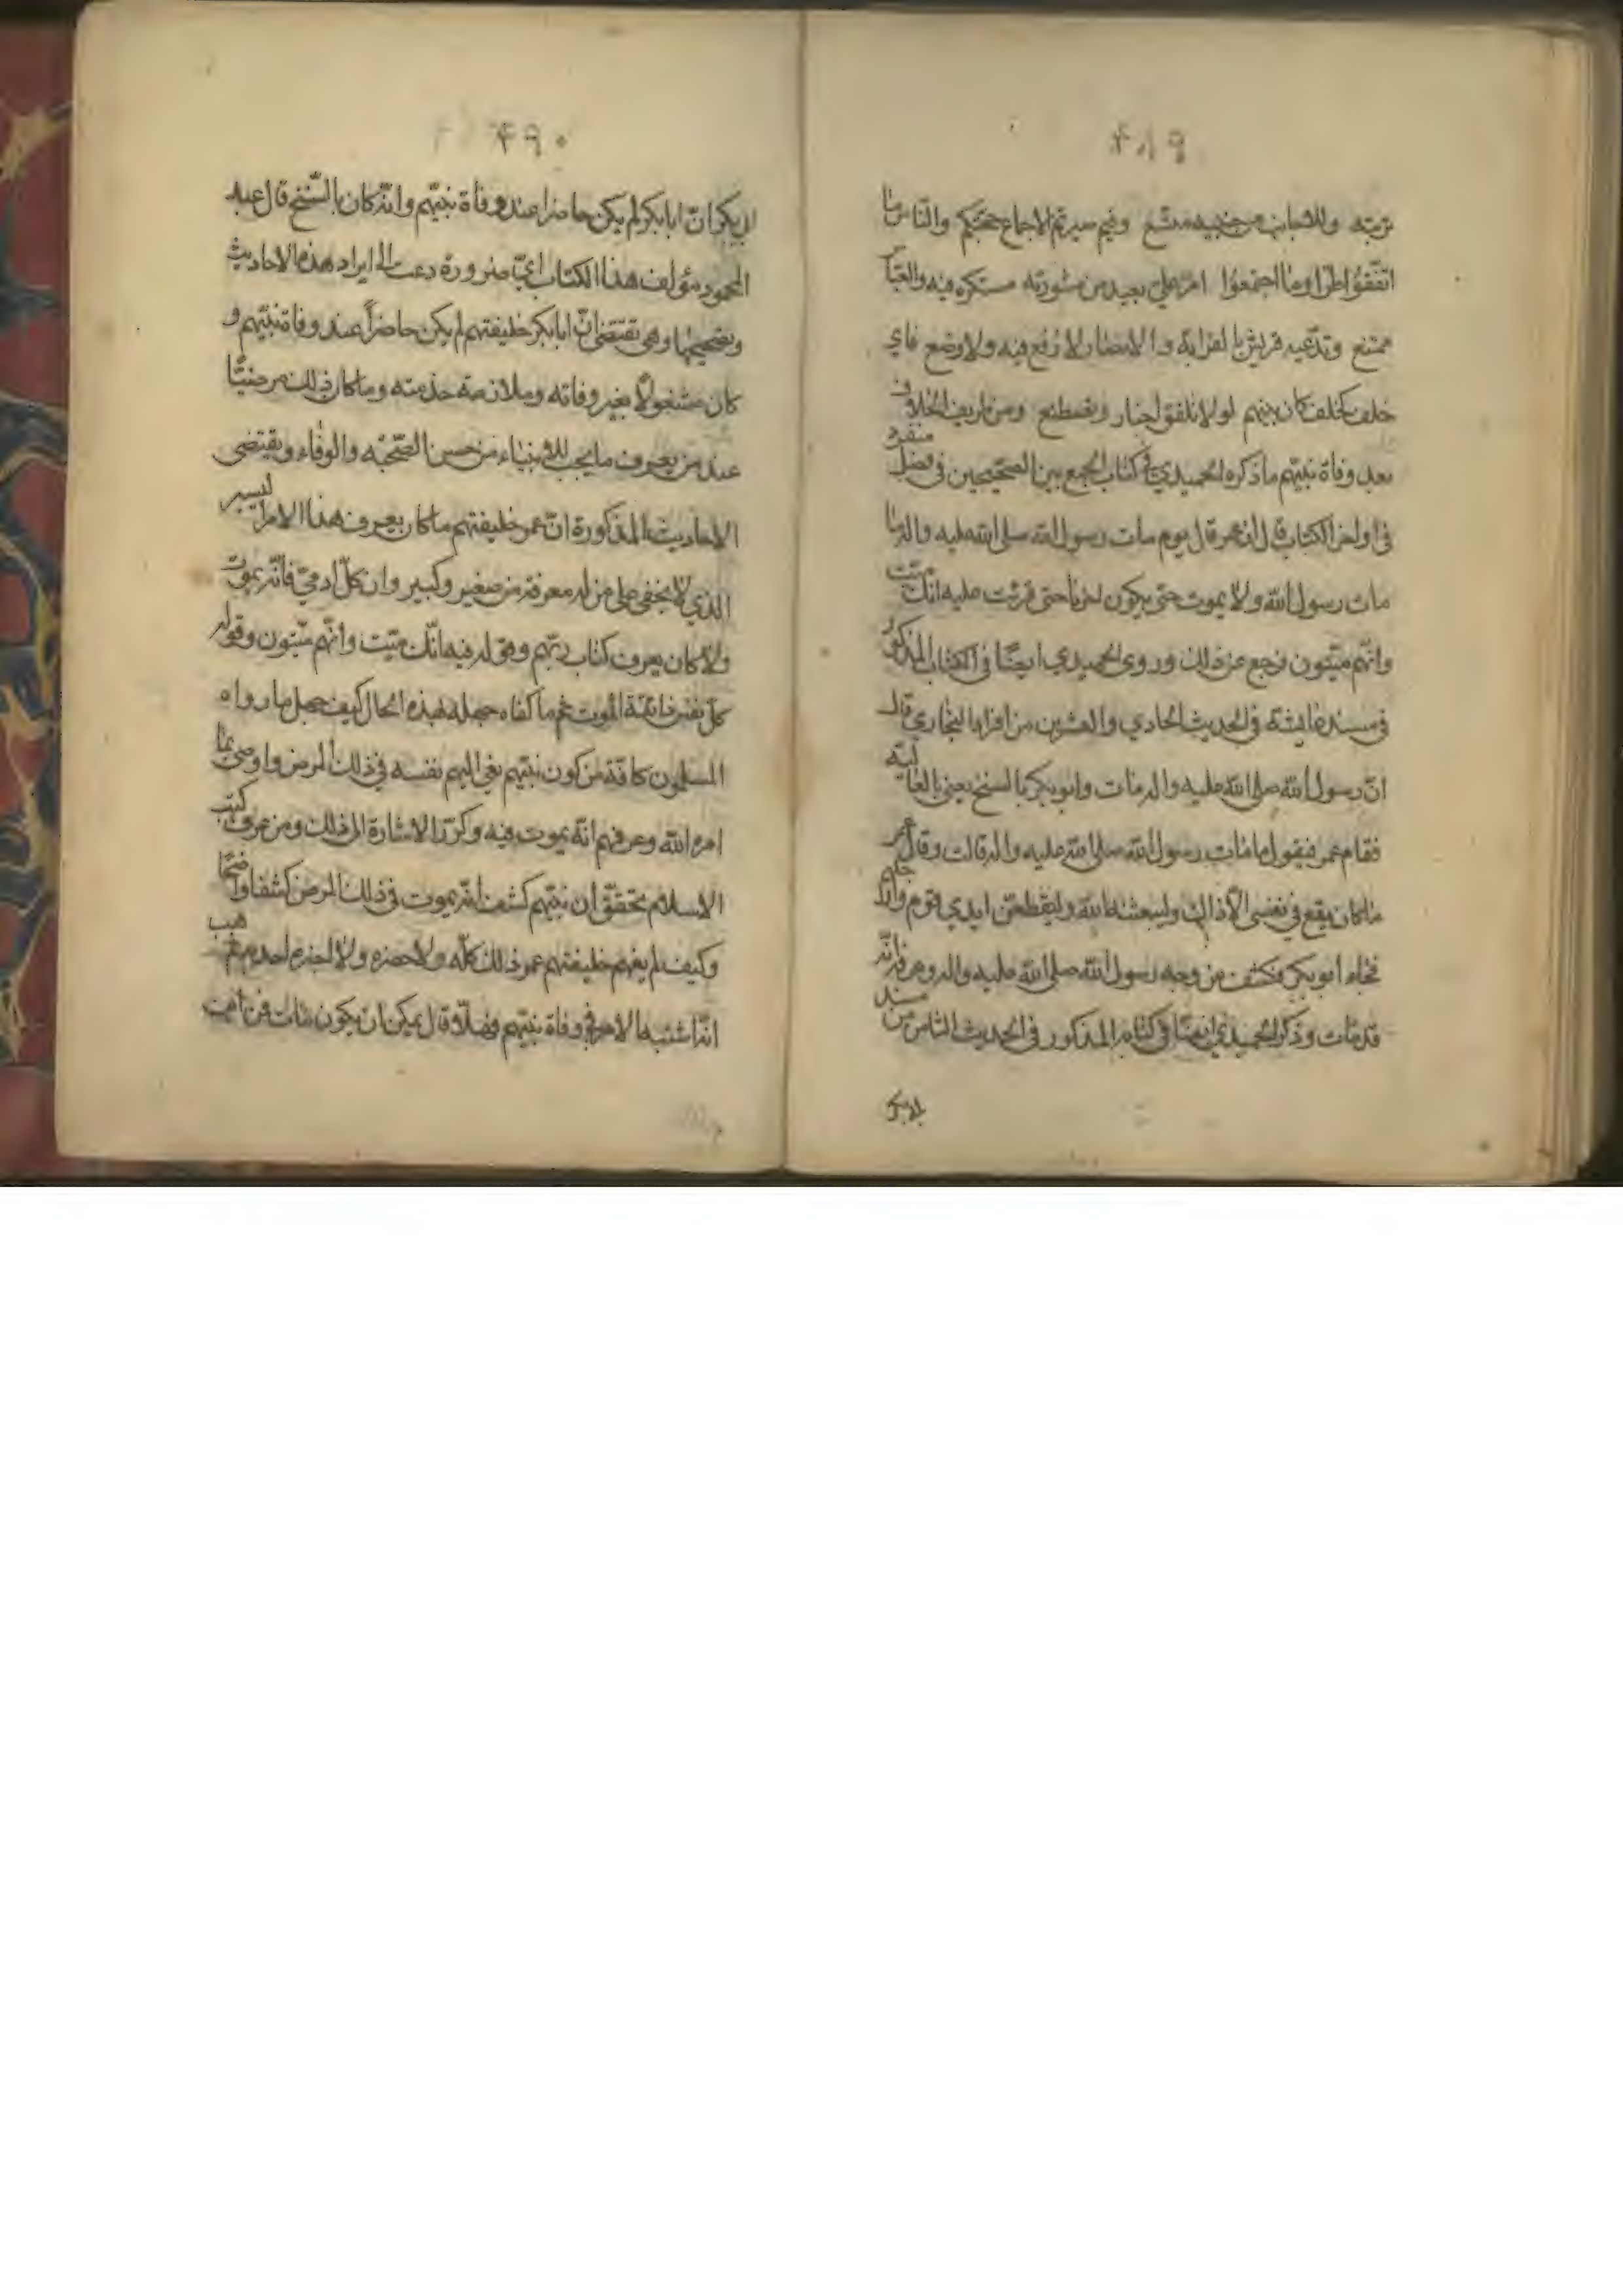 ٤٨٩
تربته وللاصحاب من جنبيه متسع وفيم صيرتم الاجماع حجتكم والناس ما
اتفقوا طرا وما اجتمعوا امر علي بعيد من مشورته مستكره فيه والعبا
ممتنع وتدعيه قريش بالقرابة والانصار لا رفع فيه ولا وضع فاي
خلف كخلف كان بينهم لولا تلفق اخبار وتصطنع ومن طريف اختلاف
بعد وفاة نبيهم ما ذكره الحميدي في كتاب الجمع بين الصحيحين في فصل منفرد
في اواخر الكتاب قال ان عمر قال يوم مات رسول الله صلى الله عليه واله ما
مات رسول الله ولا يموت حتى يكون اخرنا حتى قرئت عليه انك ميت
وانهم ميتون فرجع عن ذلك وروى الحميدي ايضا في الكتاب المذكور
في مسند عايشة في الحديث الحادي والعشرين من افراد البخاري قال
ان رسول الله صلى الله عليه واله مات وابو بكر بالسنح يعني بالعالية
فقام عمر فيقول ما مات رسول الله صلى الله عليه واله قالت وقال عمر
ما كان يقع في نفسي الا ذاك وليبعثنه الله وليقطعن ايدي قوم وارجلهم
فجاء ابو بكر فكشف عن وجه رسول الله صلى الله عليه واله وعرف انه
قد مات وذكر الحميدي ايضا في كتابه المذكور في الحديث الثامن من مسند
ابي بكر
٤٩٠
ابي بكر ان ابا بكر لم يكن حاضرا عند وفاة نبيهم وانه كان بالسنح قال عبد
المحمود مؤلف هذا الكتاب اي ضرورة دعت الى ايراد هذه الاحاديث
وتصحيحها وهي تقتضي ان ابا بكر خليفتهم لم يكن حاضراً عند وفاة نبيهم و
كان مشغولا بغير وفاته وملازمة خدمته وما كان ذلك مرضيا
عند من يعرف ما يجب للانبياء من حسن الصحبة والوفاء ويقتضي
الاحاديث المذكورة ان عمر خليفتهم ما كان يعرف هذا الامر اليسير
الذي لا يخفى على من له معرفة من صغير وكبير وان كل ادمي فانه يموت
ولا كان يعرف كتاب ربهم وقوله فيه انك ميت وانهم ميتون وقوله
كل نفس ذائقة الموت ثم ما كفاه جهله بهذه الحال كيف جهل ما رواه
المسلمون كافة من كون نبيهم نعى اليهم نفسه في ذلك المرض واوصى بما
امره الله وعرفهم انه يموت فيه وكرر الاشارة الى ذلك ومن عرف كتب
الاسلام تحقق ان نبيهم كشف انه يموت في ذلك المرض كشفا واضحا
وكيف لم يفهم خليفتهم عمر ذلك كله ولا حضره ولا اخبره احد منهم هب
انه اشتبه الامر في وفاة نبيهم فهلا قال يمكن ان يكون مات فمن اين